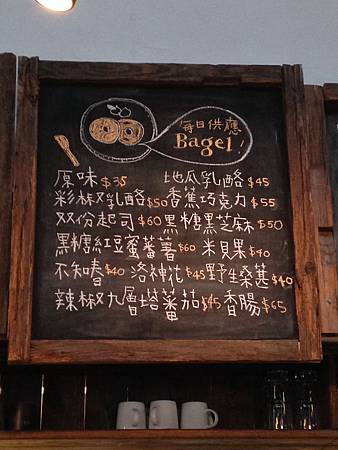 每日供應
Bagel!
原味 $35 地瓜乳酪 $45
彩椒双乳酪 $50 香蕉巧克力 $55
双份起司 $60 黑糖黑芝麻 $50
黑糖紅豆蜜蕃薯 $60 米貝果 $40
不知嗜 $40 洛神花 $45 野生桑葚 $40
辣椒九層塔蕃茄 $45 香腸 $65